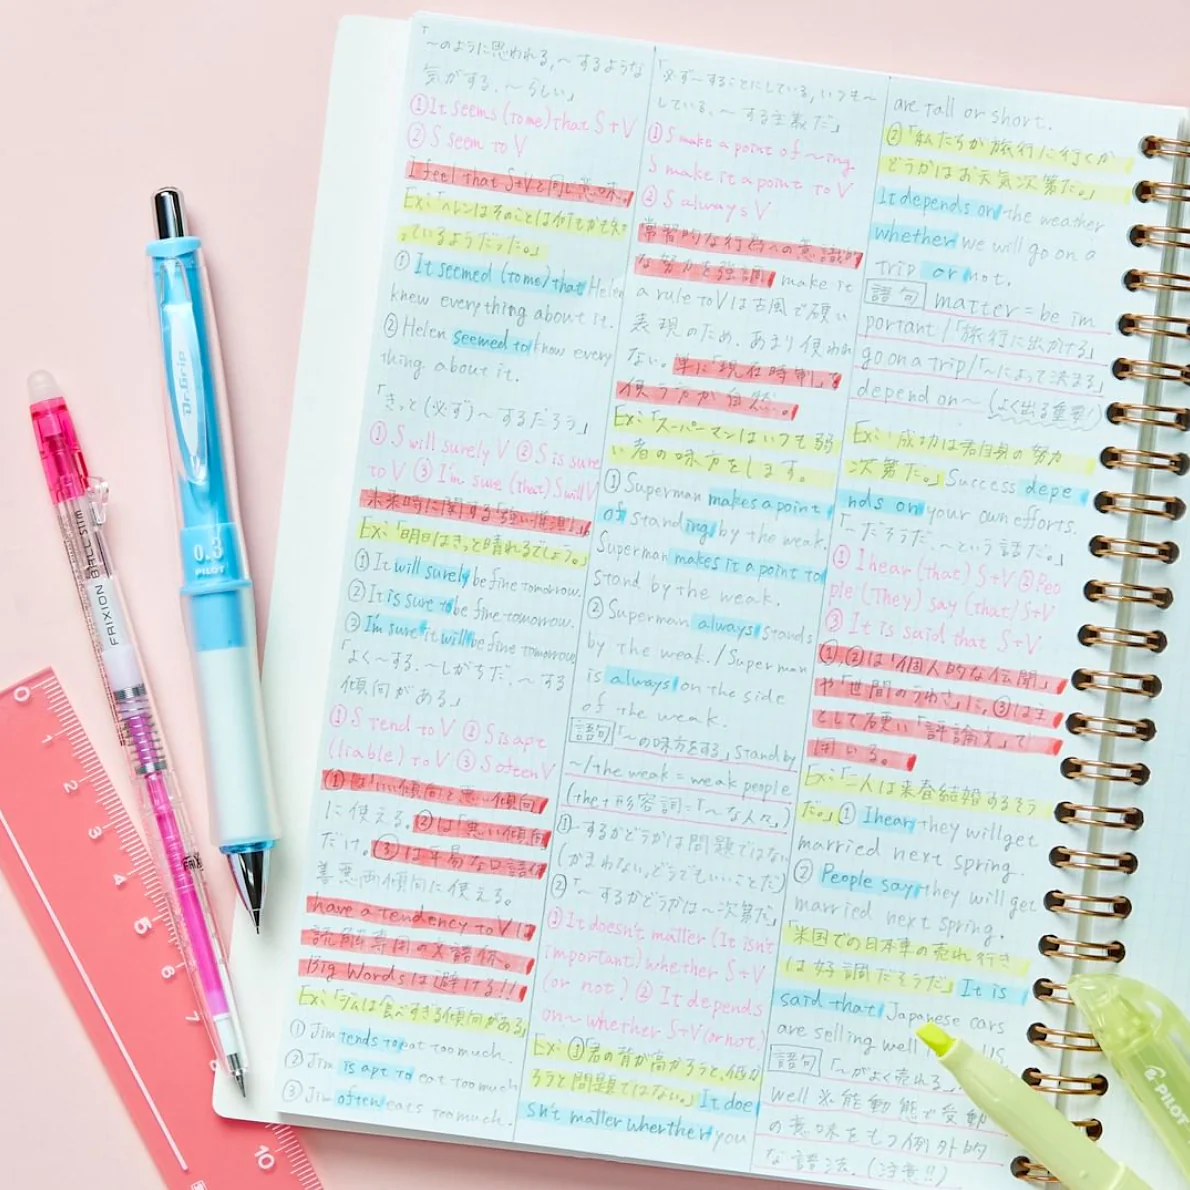 「〜のように思われる、〜するような
気がする、〜らしい」
①It seems (to me) that S+V
② S seem to V
I feel that S+Vと同じ意味。
Ex:「ヘレンはそのことは何もかも知
っているようだった。」
① It seemed (to me) that Helen
knew everything about it.
② Helen seemed to know every
thing about it.
「きっと(必ず)〜するだろう」
① S will surely V ② S is sure
to V ③ I'm sure (that) S will V
未来時に関する「強い推測」。
Ex:「明日はきっと晴れるでしょう。」
① It will surely be fine tomorrow.
② It is sure to be fine tomorrow.
③ I'm sure it will be fine tomorrow
「よく〜する、〜しがちだ、〜する
傾向がある」
① S tend to V ② S is apt
(liable) to V ③ S often V
①は「いい傾向と悪い傾向
に使える。②は「悪い傾向
だけ。③は平易な口語体
善悪両傾向に使える。
have a tendency to Vは
読解専用の文語体。
Big Wordsは避ける!!
Ex:「ジムは食べすぎる傾向がある」
① Jim tends to eat too much.
② Jim is apt to eat too much
③ Jim often eats too much.
「必ず〜することにしている、いつも〜
している、〜する主義だ」
① S make a point of 〜ing
S make it a point to V
② S always V
常習的な行為への意識的
な努力を強調 make it
a rule to Vは古風で硬い
表現のため、あまり使われ
ない。単に「現在時制」で
使う方が自然。
Ex:「スーパーマンはいつも弱
い者の味方をします。
① Superman makes a point
of standing by the weak.
Superman makes it a point to
stand by the weak.
② Superman always stands
by the weak. / Superman
is always on the side
of the weak.
語句 「〜の味方をする」 stand by
〜/ the weak = weak people
(the + 形容詞 = 「〜な人々」)
①〜するかどうかは問題ではない
(かまわない、どうでもいいことだ)
②「〜するかどうかは〜次第だ」
① It doesn't matter (It isn't
important) whether S+V
(or not) ② It depends
on〜 whether S+V (or not)
Ex: ①「君の背が高かろうと、低か
ろうと問題ではない。」 It doe
sn't matter wherther you
are tall or short.
②「私たちが旅行に行くか
どうかはお天気次第だ。」
It depends on the weather
whether we will go on a
trip or not.
語句 matter = be im
portant /「旅行に出かける」
go on a trip/「〜によって決まる」
depend on〜 (よく出る重要!)
Ex:「成功は君自身の努力
次第だ。」 Success depe
nds on your own efforts.
「〜だそうだ、〜という話だ。」
① I hear (that) S+V ② Peo
ple (They) say (that) S+V
③ It is said that S+V
①、②は「個人的な伝聞」
や「世間のうわさ」だ。③は主
として硬い「評論文」で
用いる。
Ex:「二人は来春結婚するそう
だ。」 ① I hear they will get
married next spring.
② People say they will get
married next spring.
「米国での日本車の売れ行き
は好調だそうだ」 It is
said that Japanese cars
are selling well US
語句 「〜がよく売れる」
well ※能動態で受動
の意味をもつ例外的
な語法。(注意!!)
Dr.Grip
0.3
PILOT
FRIXION BALL slim
0
1
2
3
4
5
6
7
10
PILOT